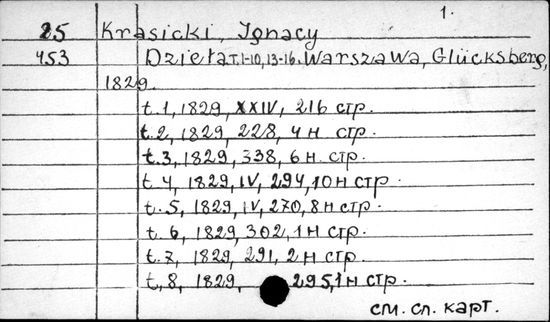 1.
25 Krasicki, Ignacy
453 Dzieła T.1-10, 13-16. Warszawa, Glücksberg,
1829.
t.1, 1829, XXIV, 216 стр.
t.2, 1829, 228, 4 н стр.
t.3, 1829, 338, 6 н. стр.
t.4, 1829, IV, 294, 10 н стр.
t.5, 1829, IV, 270, 8 н стр.
t.6, 1829, 302, 1 н стр.
t.7, 1829, 291, 2 н стр.
t.8, 1829, 295, 1 н стр.
см. сл. карт.